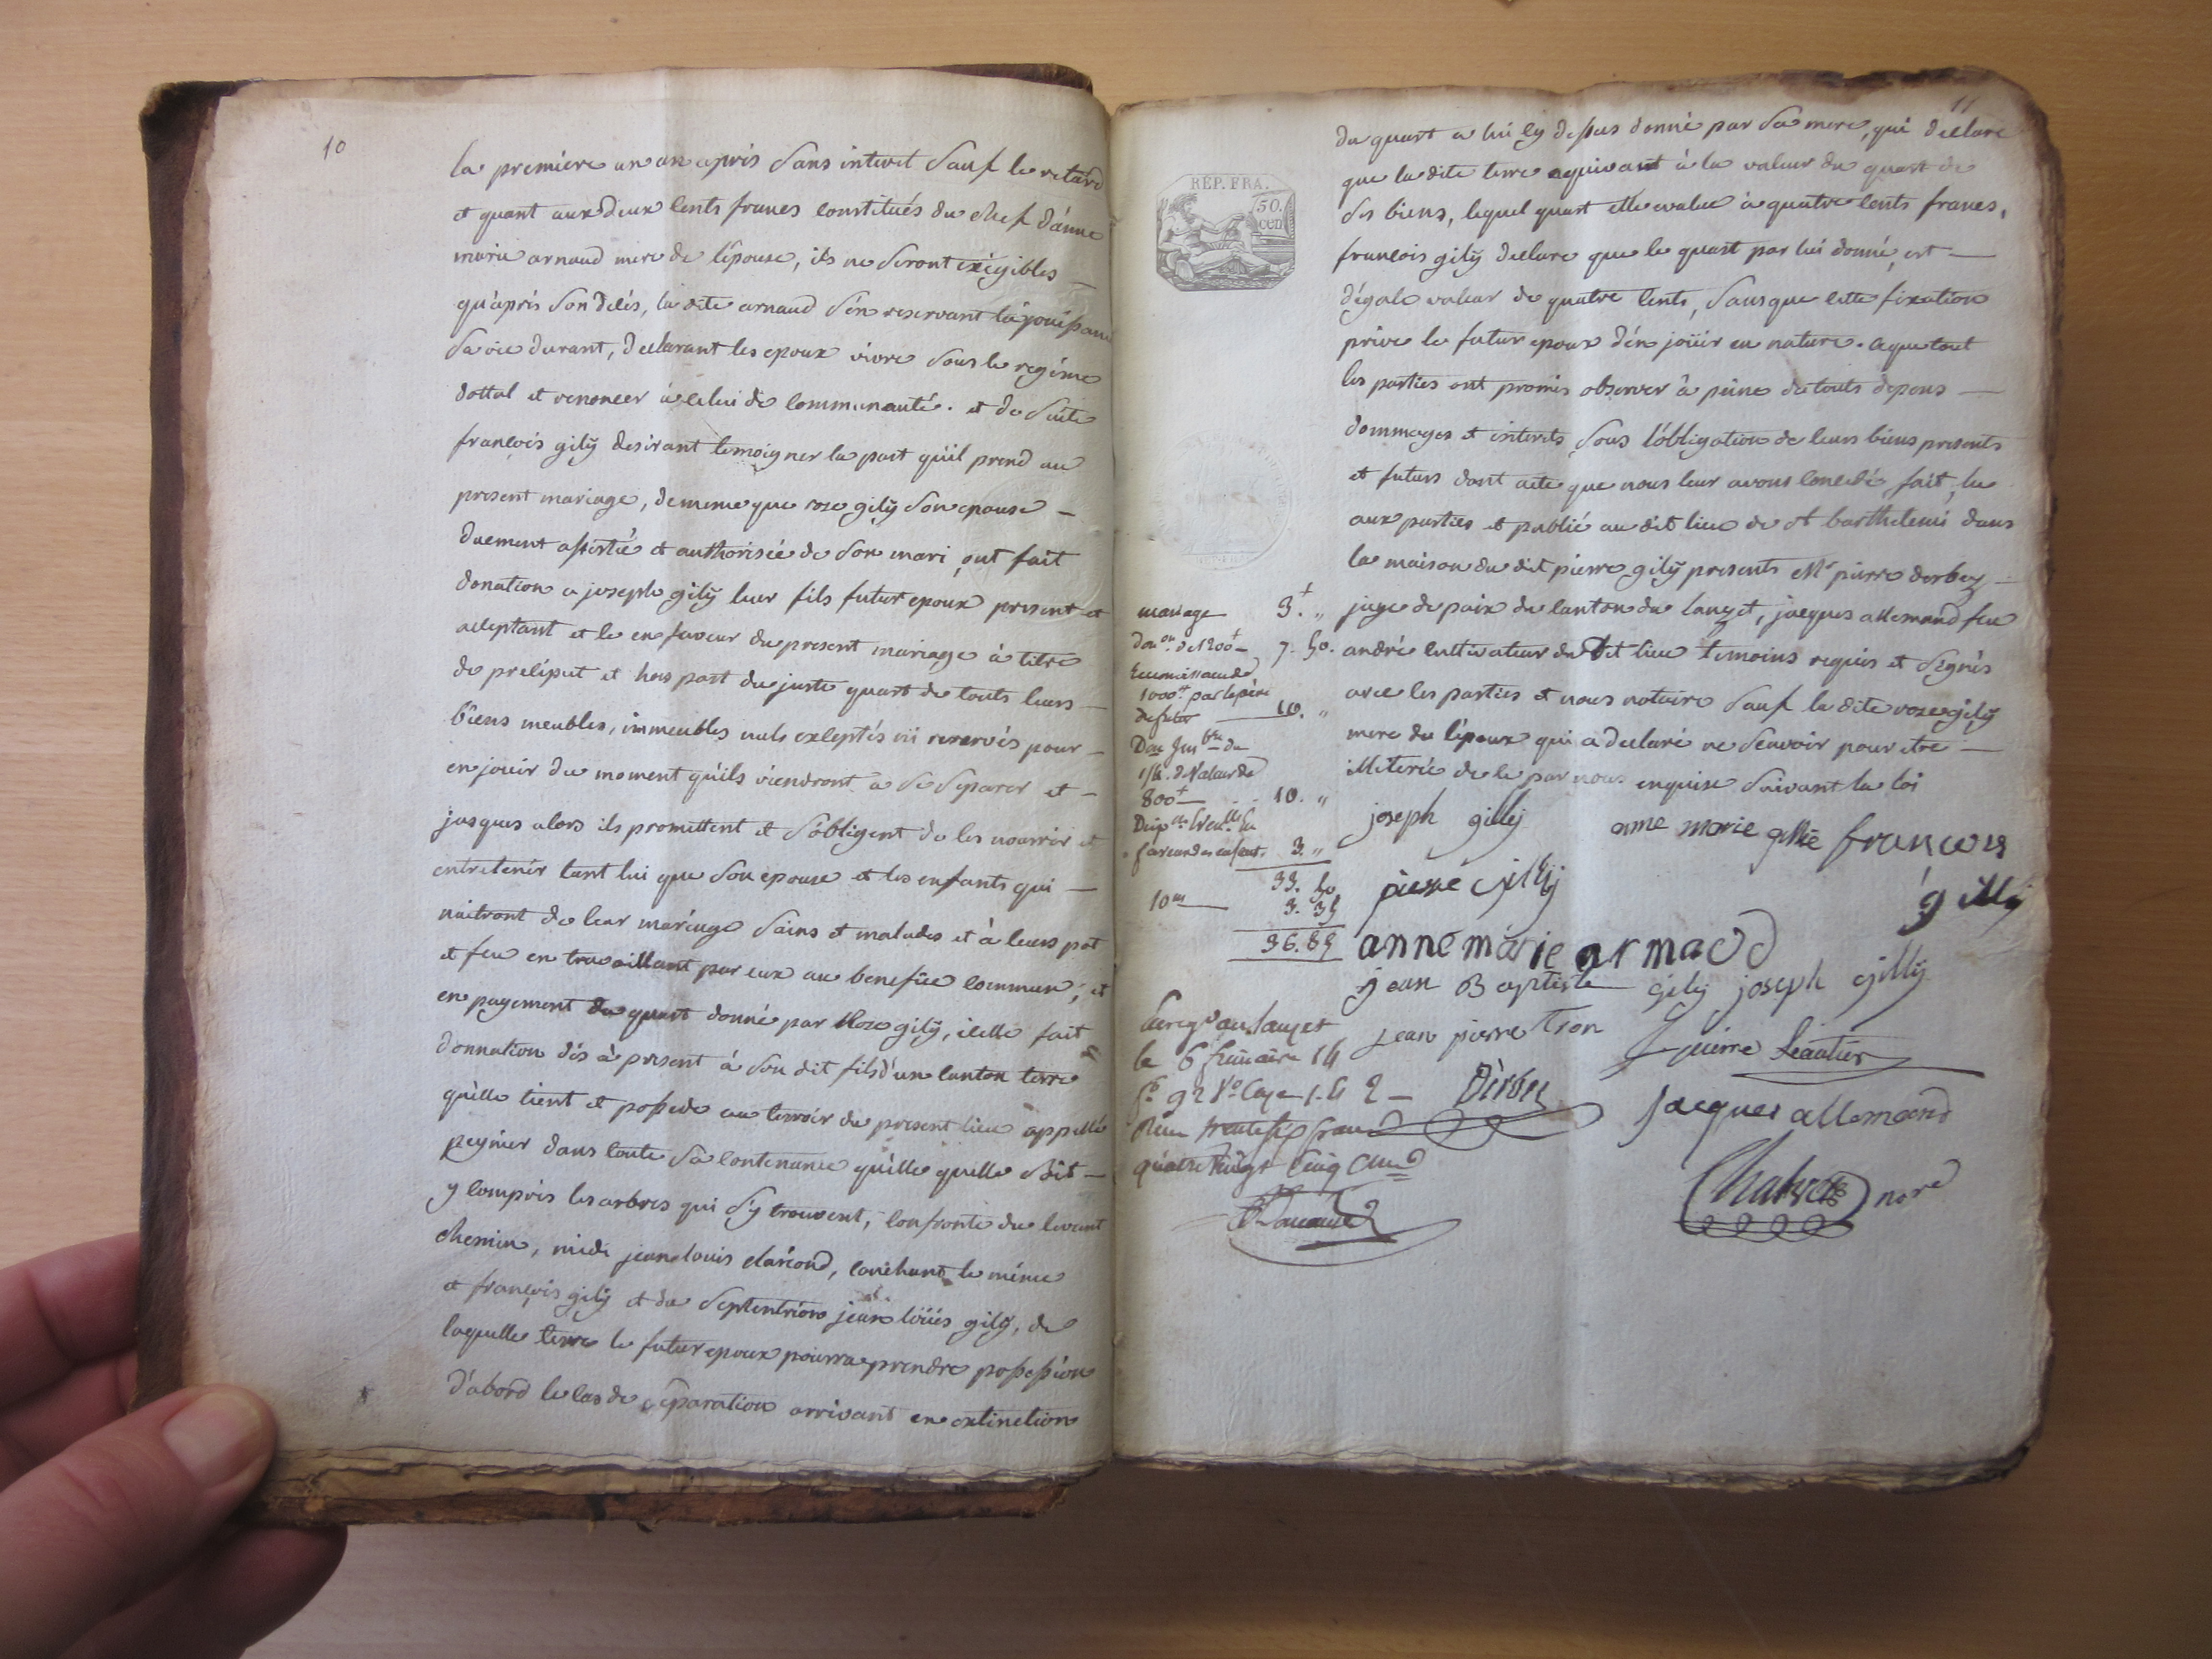 10
la premiere un an apris sans interet sauf le retard
et quant aux deux cents francs constitués du chef d'anne
marie arnaud mere de l'epouse, ils ne seront exigibles
qu'aprés son décés, la dite arnaud s'en reservant la jouissance
sa vie durant, declarant les epoux vivre sous le regime
dottal et renoncer à celui de communauté. et de suite
françois gilÿ desirant temoigner la part qu'il prend au
present mariage, de meme que rose gilÿ son epouse
duement assistée et authorisée de son mari, ont fait
donation a joseph gilÿ leur fils futur epoux present et
acceptant et ce en faveur du present mariage à titre
de preciput et hors part du juste quart de touts leurs
biens meubles, immeubles nuls exceptés ni reservés pour
en jouir du moment qu'ils viendront a se separer et
jusques alors ils promettent et s'obligent de les nourrir et
entretenir tant lui que son epouse et les enfants qui
naitront de leur mariage sains et malades et à leurs pot
et feu en travaillant par eux au benefice commun; et
en payement du quart donné par Rose gilÿ, icelle fait
donnation dés à present à son dit fils d'un canton terre
qu'elle tient et possede au terroir du present lieu appellé
peynier dans toute sa contenance qu'elle quelle soit
y compris les arbres qui s'y trouvent, confronte du levant
chemin, midi jean louis clariond, couchant le même
et françois gilÿ et du septentrion jean loüis gilÿ, de
laquelle terre le futur epoux pourra prendre possession
d'abord le cas de separation arrivant en extinction
11
REP. FRA.
50.
cen
du quart a lui cy dessus donné par sa mere, qui declare
que la dite terre equivant à la valeur du quart de
ses biens, lequel quart elle evalue à quatre cents francs,
françois gilÿ declare que le quart par lui donné, est
d'égale valeur de quatre cents, sans que cette fixation
prive le futur epoux d'en joüir en nature. ce que tout
les parties ont promis observer à peine de touts depens
dommages et interets sous l'obligation de leurs biens presents
et futurs dont acte que nous leur avons concedé, fait, lu
aux parties et publié au dit lieu de st barthelemi dans
la maison du dit pierre gilÿ presents Mr pierre derbez
juge de paix du canton du lauzet, jacques allemand feu
andré cultivateur du dit lieu temoins requis et signés
avec les parties et nous notaire sauf la dite rose gilÿ
mere de l'epoux qui a declaré ne sçavoir pour etre
illeterée de ce par nous enquise suivant la loi
mariage 3. "
don.on de 1200 7. 50.
1000 par le pere
du futur 10. "
1/4. de Valeur de
800 10. "
3. "
33. 50
10me 3. 35
36. 85
joseph gillÿ
anne marie gillie
françois
gillÿ
pierre gillÿ
anne marie arnaud
jean Baptiste gilÿ
joseph gillÿ
jean pierre Tron
pierre Leautier
Derbez
jacques allemand
nore
au lauzet
le 6 frimaire 14
Reçu trente six francs
quatre vingt cinq